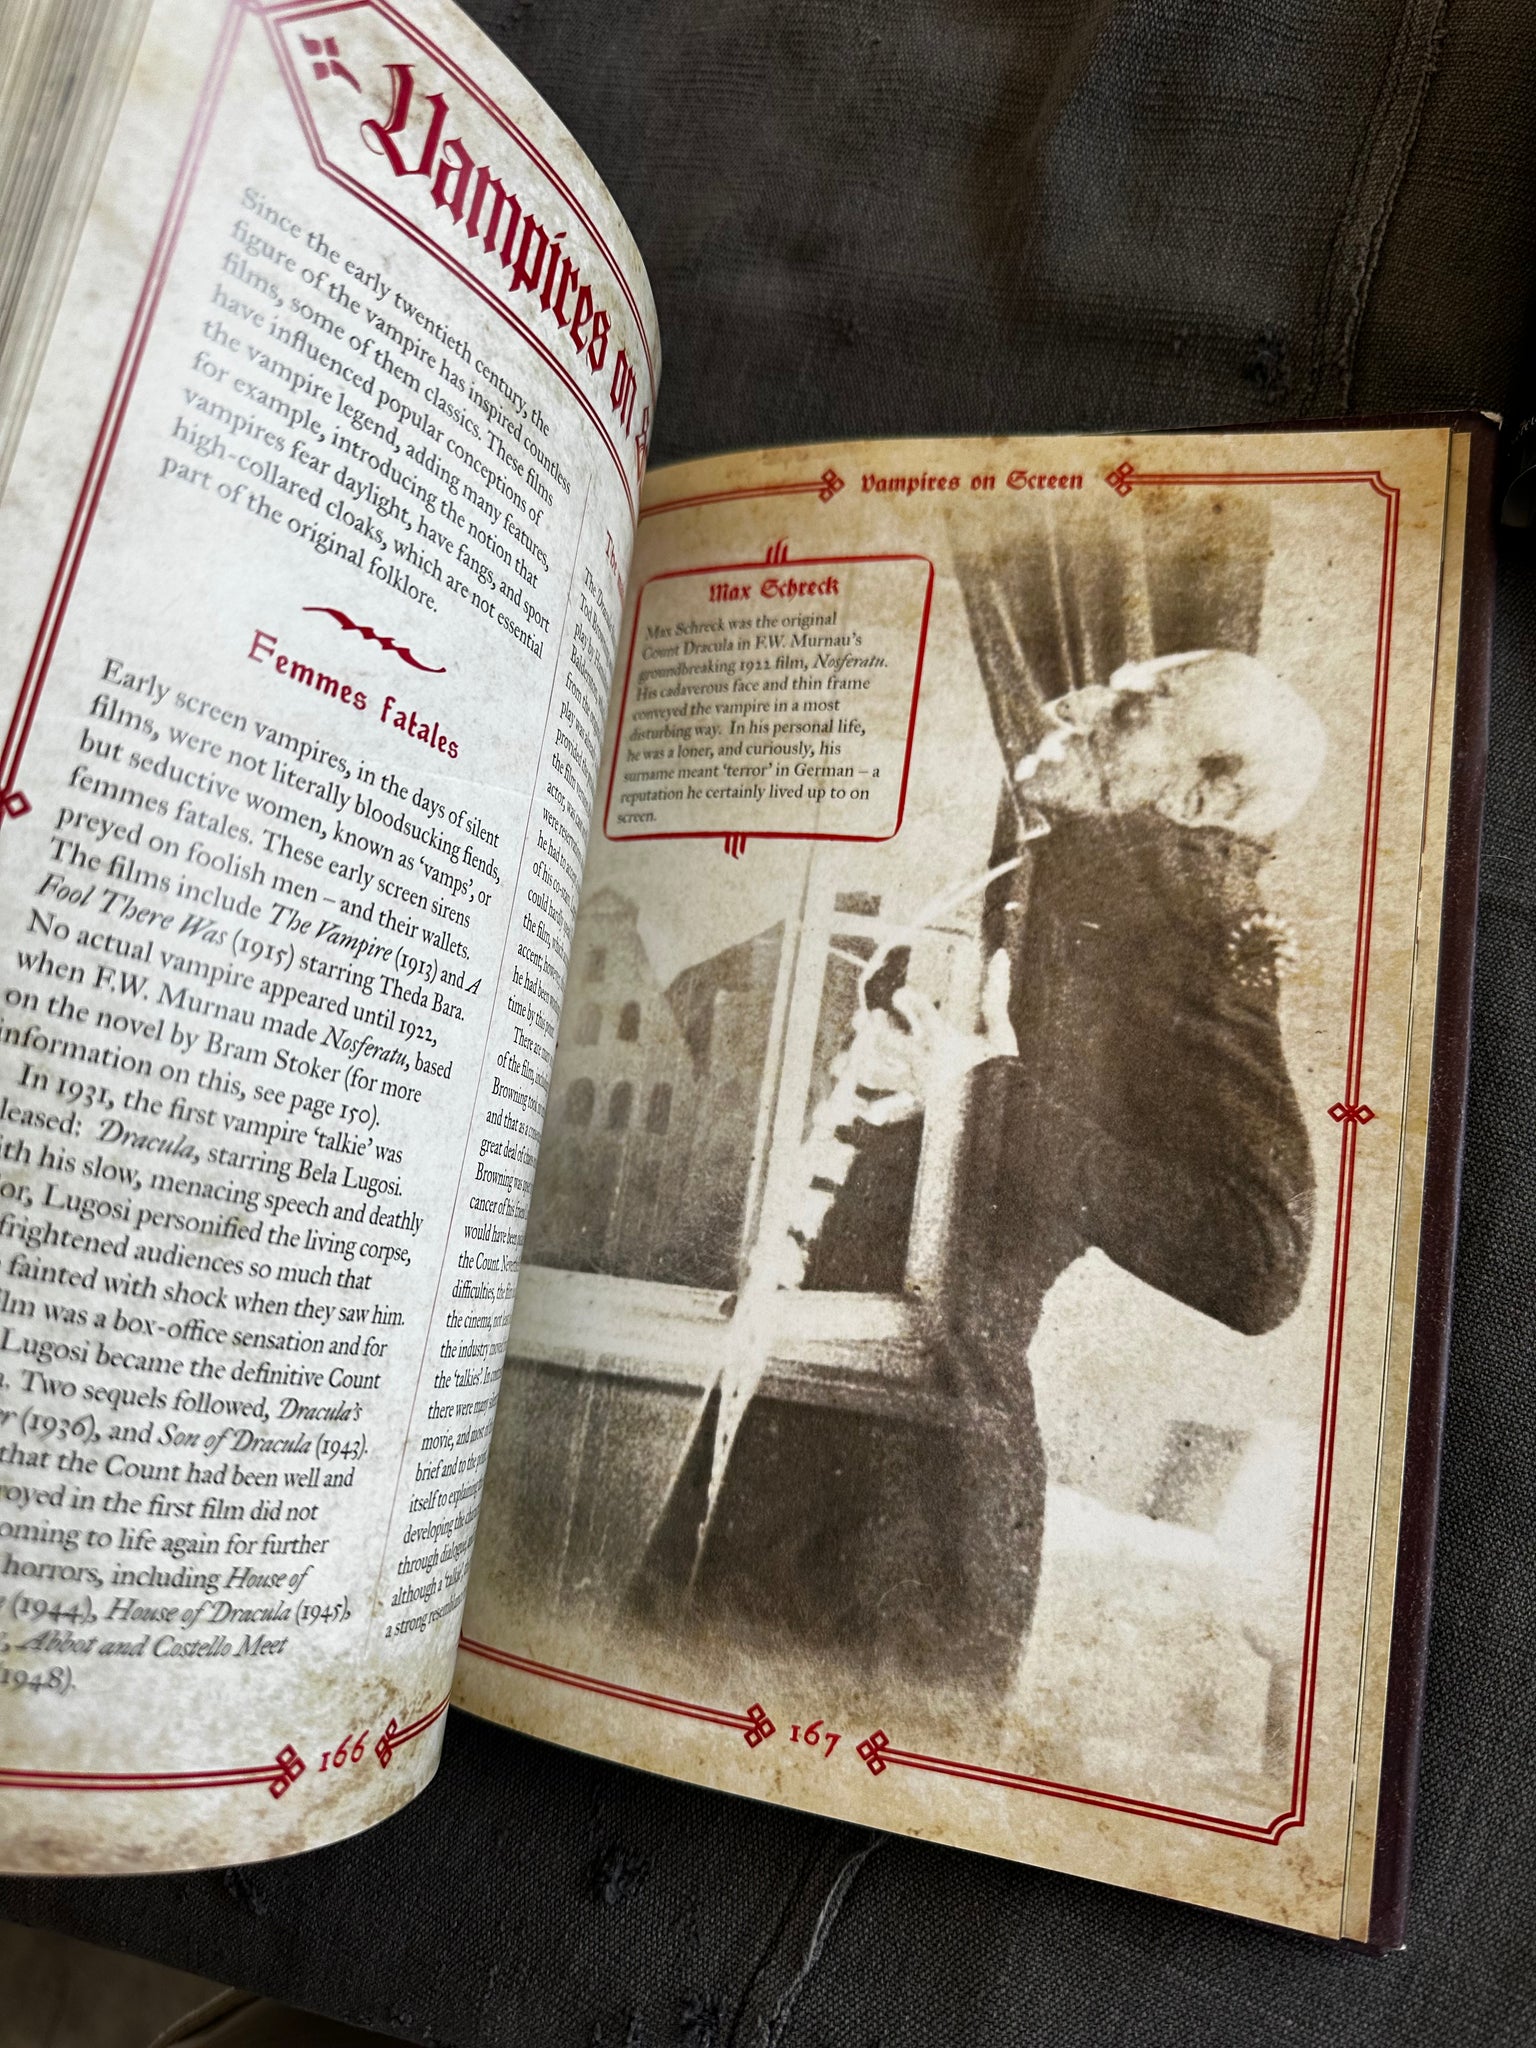 Vampires on
Since the early twentieth century, the
figure of the vampire has inspired countless
films, some of them classics. These films
have influenced popular conceptions of
the vampire legend, adding many features,
for example, introducing the notion that
vampires fear daylight, have fangs, and sport
high-collared cloaks, which are not essential
part of the original folklore.
Femmes Fatales
Early screen vampires, in the days of silent
films, were not literally bloodsucking fiends,
but seductive women, known as ‘vamps’, or
femmes fatales. These early screen sirens
preyed on foolish men – and their wallets.
The films include The Vampire (1913) and A
Fool There Was (1915) starring Theda Bara.
No actual vampire appeared until 1922,
when F.W. Murnau made Nosferatu, based
on the novel by Bram Stoker (for more
information on this, see page 150).
In 1931, the first vampire ‘talkie’ was
leased: Dracula, starring Bela Lugosi.
ith his slow, menacing speech and deathly
or, Lugosi personified the living corpse,
frightened audiences so much that
fainted with shock when they saw him.
lm was a box-office sensation and for
Lugosi became the definitive Count
Two sequels followed, Dracula’s
(1936), and Son of Dracula (1943).
that the Count had been well and
royed in the first film did not
oming to life again for further
horrors, including House of
(1944), House of Dracula (1945),
Abbot and Costello Meet
(1948).
The Dracula
Tod Brown
play by
Balderston
from the
play was
provided
the film
actor, was
were
he had to
of his co-stars
could hardly
the film, which
accent; however,
he had been
time by this point
There are many
of the film,
Browning took
and that as a
great deal of
Browning was
cancer of his friend
would have been
the Count.
difficulties, the film
the cinema, not
the industry moved
the ‘talkies’. In
there were many
movie, and most of
brief and to the
itself to explaining
developing the
through dialogue,
although a ‘talkie’,
a strong
166
Vampires on Screen
Max Schreck
Max Schreck was the original
Count Dracula in F.W. Murnau’s
groundbreaking 1922 film, Nosferatu.
His cadaverous face and thin frame
conveyed the vampire in a most
disturbing way. In his personal life,
he was a loner, and curiously, his
surname meant ‘terror’ in German – a
reputation he certainly lived up to on
screen.
167